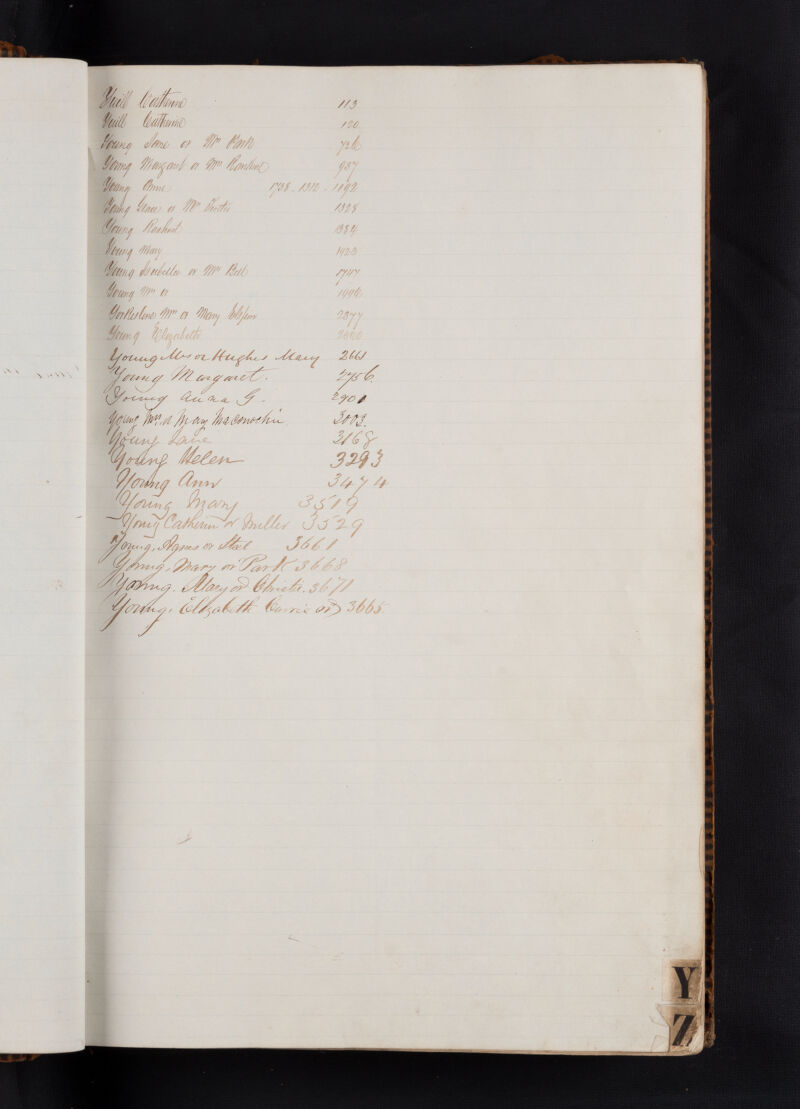 Yuill Catherine 113
Yuill Catherine 120
Young Jane or Mrs Park 736
Young Margaret or Mrs 937
Young Anne 1738 - 1312 - 1892
Young Grace or Mrs 1328
Young Rachael 1384
Young Mary 1423
Young Isabella or Mrs Bell 1747
Young Mrs or
Mrs or Mary 2377
Young Elizabeth
Young Mrs or Hughes Mary 2661
Young Margaret. 2756.
Young Anna G. 2901
Young Mrs. or May Maconochie 3003.
Young Jane 3168
Young Helen 3293
Young Ann 3474
Young Mary 3519
Young Catherine or Miller 3529
Young. Agnes or 3661
Young. Mary or Park 3668
Young. Mary or Christie. 3671
Young. Elizabeth Currie or) 3665
Y
Z